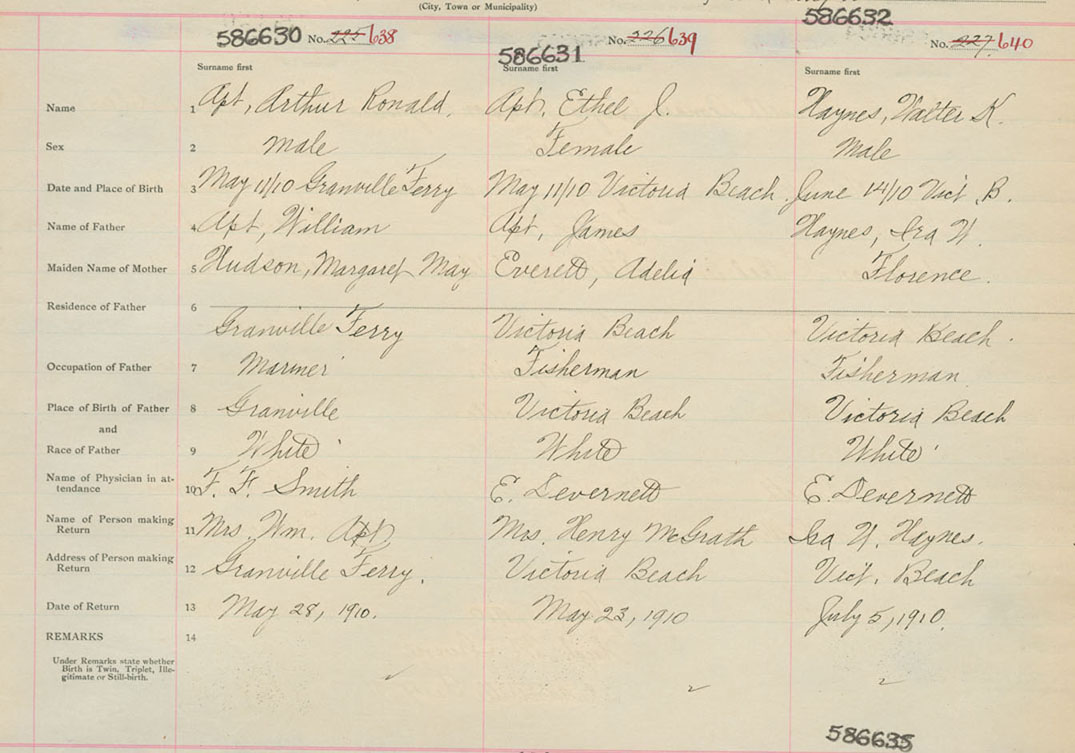 (City, Town or Municipality)
586630 No. 225 638
586631 No. 226 639
586632 No. 227 640
Surname first Surname first Surname first
Name 1 Apt, Arthur Ronald. Apt, Ethel J. Haynes, Walter K.
Sex 2 Male Female Male
Date and Place of Birth 3 May 11/10 Granville Ferry May 11/10 Victoria Beach. June 14/10 Vict. B.
Name of Father 4 Apt, William Apt, James Haynes, Ira W.
Maiden Name of Mother 5 Hudson, Margaret May Everett, Adelia Florence.
Residence of Father 6
Granville Ferry Victoria Beach Victoria Beach.
Occupation of Father 7 Mariner Fisherman Fisherman.
Place of Birth of Father 8 Granville Victoria Beach Victoria Beach
and
Race of Father 9 White White White
Name of Physician in at-
tendance 10 F. F. Smith E. Devernett E. Devernett
Name of Person making
Return 11 Mrs. Wm. Apt Mrs. Henry McGrath Ira W. Haynes.
Address of Person making
Return 12 Granville Ferry. Victoria Beach Vict. Beach
Date of Return 13 May 28, 1910. May 23, 1910 July 5, 1910.
REMARKS 14
Under Remarks state whether
Birth is Twin, Triplet, Ille-
gitimate or Still-birth.
586635